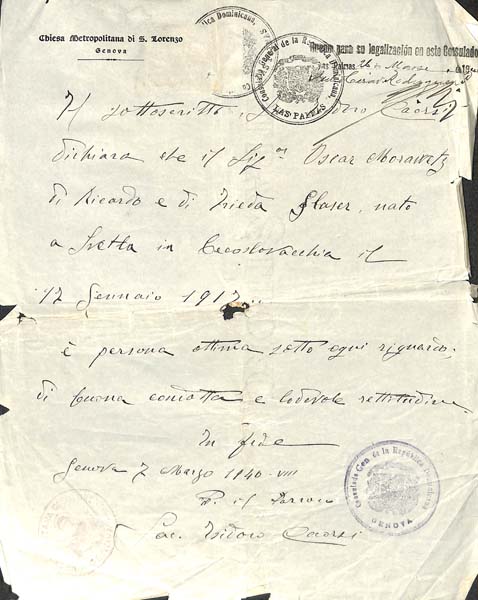 Chiesa Metropolitana di S. Lorenzo
Genova
Consulado General de la República Dominicana
LAS PALMAS
Bueno para su legalización en este Consulado
Las Palmas 26 Marzo de 19
Il sottoscritto Isidoro Caorsi
dichiara che il Sig.or Oscar Morawetz
di Ricardo e di Frieda Glaser, nato
a Svetla in Cecoslovacchia il
12 Gennaio 1912
è persona ottima sotto ogni riguardo,
di buona condotta e lodevole rettitudine.
In fede
Genova 7 Marzo 1940-VIII
P. il Parroco
Sac. Isidoro Caorsi
Consulado Gen. de la República Dominicana
GENOVA